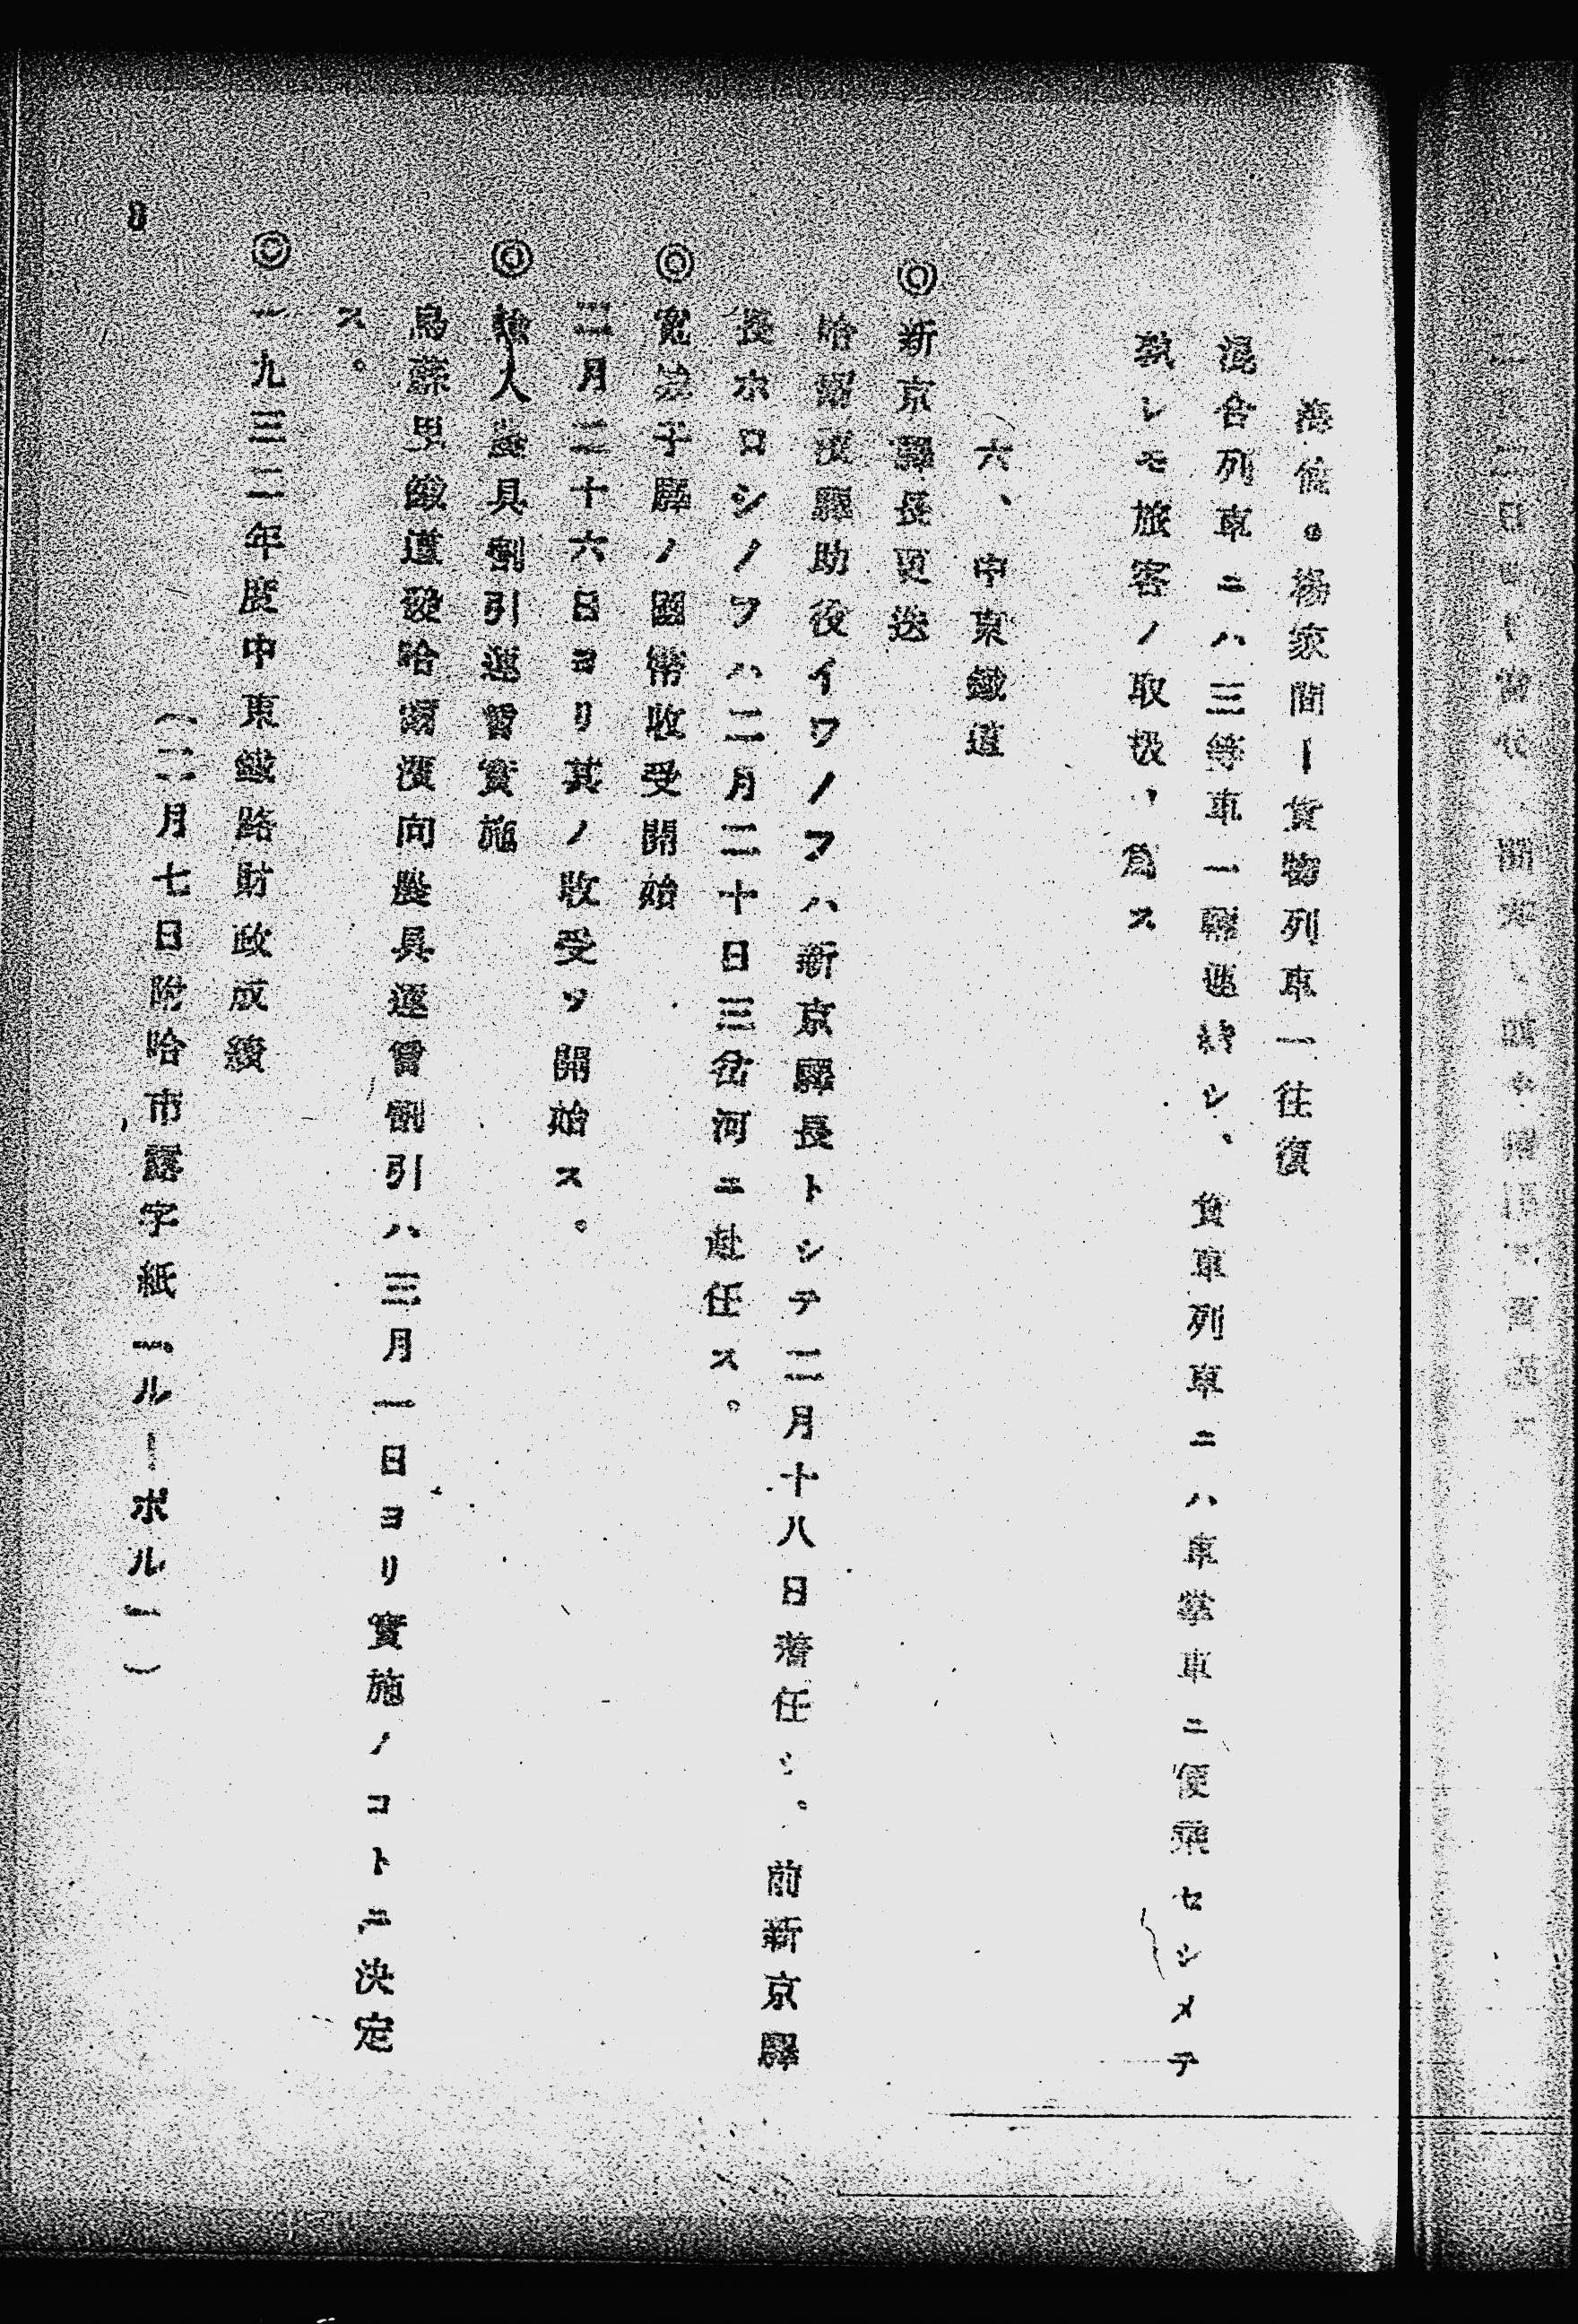 海倫。楊家間ー貨物列車一往復
混合列車ニハ三等車一輛連結シ、貨車列車ニハ車掌車ニ便乘セシメテ
孰レモ旅客ノ取扱ヲ爲ス
六、中東鐵道
◎新京驛長更迭
哈爾濱驛助役イワノフハ新京驛長トシテ二月十八日着任シ。前新京驛
長ホロシノフハ二月二十日三岔河ニ赴任ス。
◎寬城子驛ノ國幣收受開始
二月二十六日ヨリ其ノ收受ヲ開始ス。
◎輸入農具割引運賃實施
烏蘇里鐵道發哈爾濱向農具運賃割引ハ三月一日ヨリ實施ノコトニ決定
ス。
◎一九三二年度中東鐵路財政成績
（二月七日附哈市露字紙「ルーポル」）
8